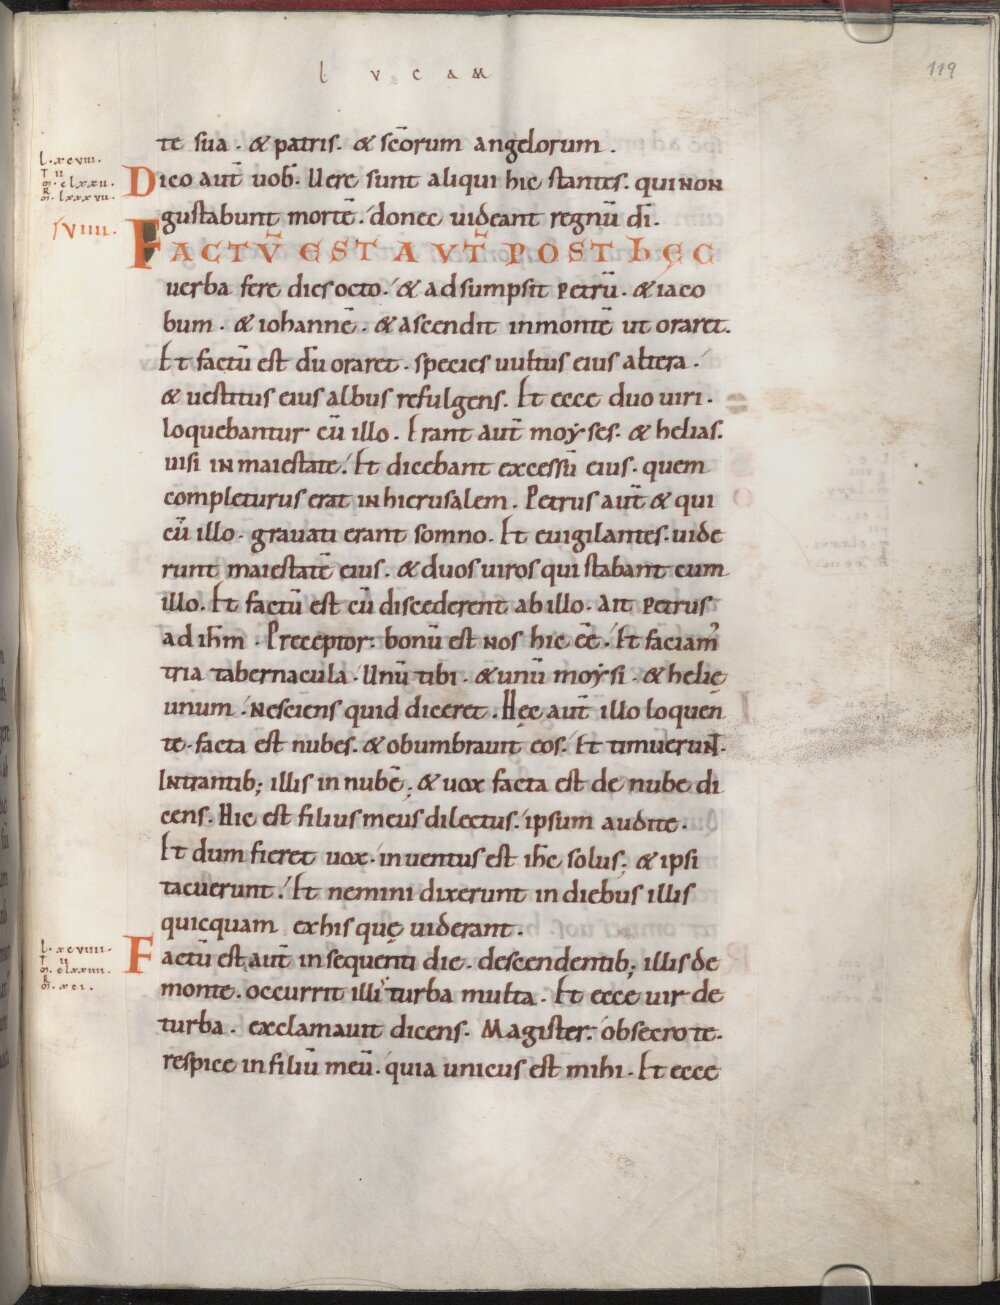 L V C A M
119
te sua . & patris . & sc̄orum angelorum .
l . xcviii .
T U
m̄ . clxxii .
R
m̄ . lxxxvii .
Dico aut̄ uob̄ . Uere sunt aliqui hic stantes . qui non
gustabunt mortē . donec uideant regnū dī .
XVIIII .
FACTŪ EST AVT̄ POST HĘC
uerba fere dies octo . & adsumpsit petrū . & iaco
bum . & iohannē . & ascendit inmontē ut oraret .
Et factū est dū oraret . species uultus eius altera .
& uestitus eius albus refulgens . Et ecce duo uiri .
loquebantur cū illo . Erant aut̄ moyses . & helias .
uisi in maiestate . Et dicebant excessū eius . quem
completurus erat in hierusalem . Petrus aut̄ & qui
cū illo . grauati erant somno . Et euigilantes . uide
runt maiestatē eius . & duos uiros qui stabant cum
illo . Et factū est cū discederent ab illo . ait petrus
ad ihm̄ . Preceptor . bonū est nos hic ēe . Et faciam᾿
tria tabernacula . Unū tibi . & unū moysi . & helię
unum . Nesciens quid diceret . Hęc aut̄ illo loquen
te . facta est nubes . & obumbrauit eos . Et timuerunt .
Intrantib; illis in nubē . & uox facta est de nube di
cens . Hic est filius meus dilectus . ipsum audite .
Et dum fieret uox . inuentus est ihc̄ solus . & ipsi
tacuerunt . Et nemini dixerunt in diebus illis
quicquam exhis quę uiderant .
l . xcviiii .
T U
m̄ . clxxiiii .
R
m̄ . xci .
Factū est aut̄ in sequenti die . descendentib; illis de
monte . occurrit illi turba multa . Et ecce uir de
turba . exclamauit dicens . Magister . obsecro te .
respice in filiū meū . quia unicus est mihi . Et ecce